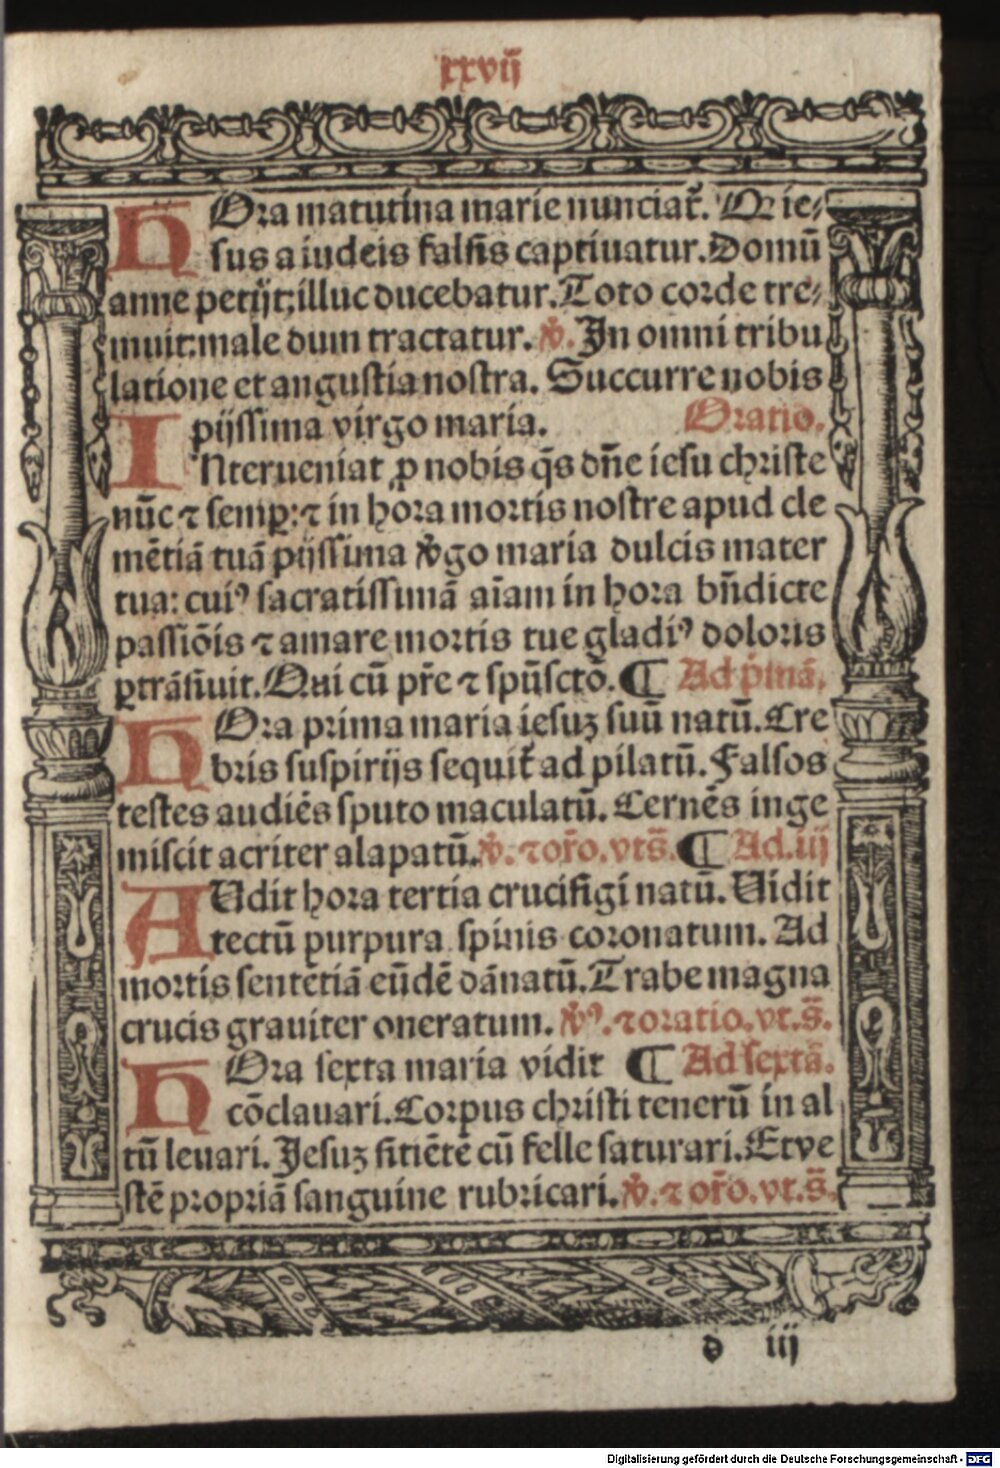 xxvij
HOra matutina marie nunciat᷑. Q ie⸗
sus a iudeis falsis captiuatur. Domū
anne petijt: illuc ducebatur. Toto corde tre⸗
muit: male dum tractatur. ℣. In omni tribu
latione et angustia nostra. Succurre nobis
pijssima virgo maria. Oratio.
INterueniat ꝓ nobis q̄s dn̄e iesu christe
nūc ⁊ semꝑ: ⁊ in hora mortis nostre apud cle
mētiā tuā pijssima ℣go maria dulcis mater
tua: cuiꝰ sacratissimā aīam in hora bn̄dicte
passiōis ⁊ amare mortis tue gladiꝰ doloris
ꝑtrāsiuit. Qui cū pr̄e ⁊ spūsctō. ¶ Ad pͥmā.
HOra prima maria iesuꝫ suū natū. Cre
bris suspirijs sequit᷑ ad pilatū. Falsos
testes audiēs sputo maculatū. Cernēs inge
miscit acriter alapatū. ℣. ⁊ or̄o. vt s̄. ¶ Ad .iij
AUdit hora tertia crucifigi natū. Uidit
tectū purpura spinis coronatum. Ad
mortis sentētiā eūdē dānatū. Trabe magna
crucis grauiter oneratum. ℣ꝰ. ⁊ oratio. vt. s̄.
HOra sexta maria vidit ¶ Ad sextā.
cōclauari. Corpus christi tenerū in al
tū leuari. Jesuꝫ sitiētē cū felle saturari. Et ve
stē propriā sanguine rubricari. ℣. ⁊ or̄o. vt. s̄.
d iij
Digitalisierung gefördert durch die Deutsche Forschungsgemeinschaft - DFG